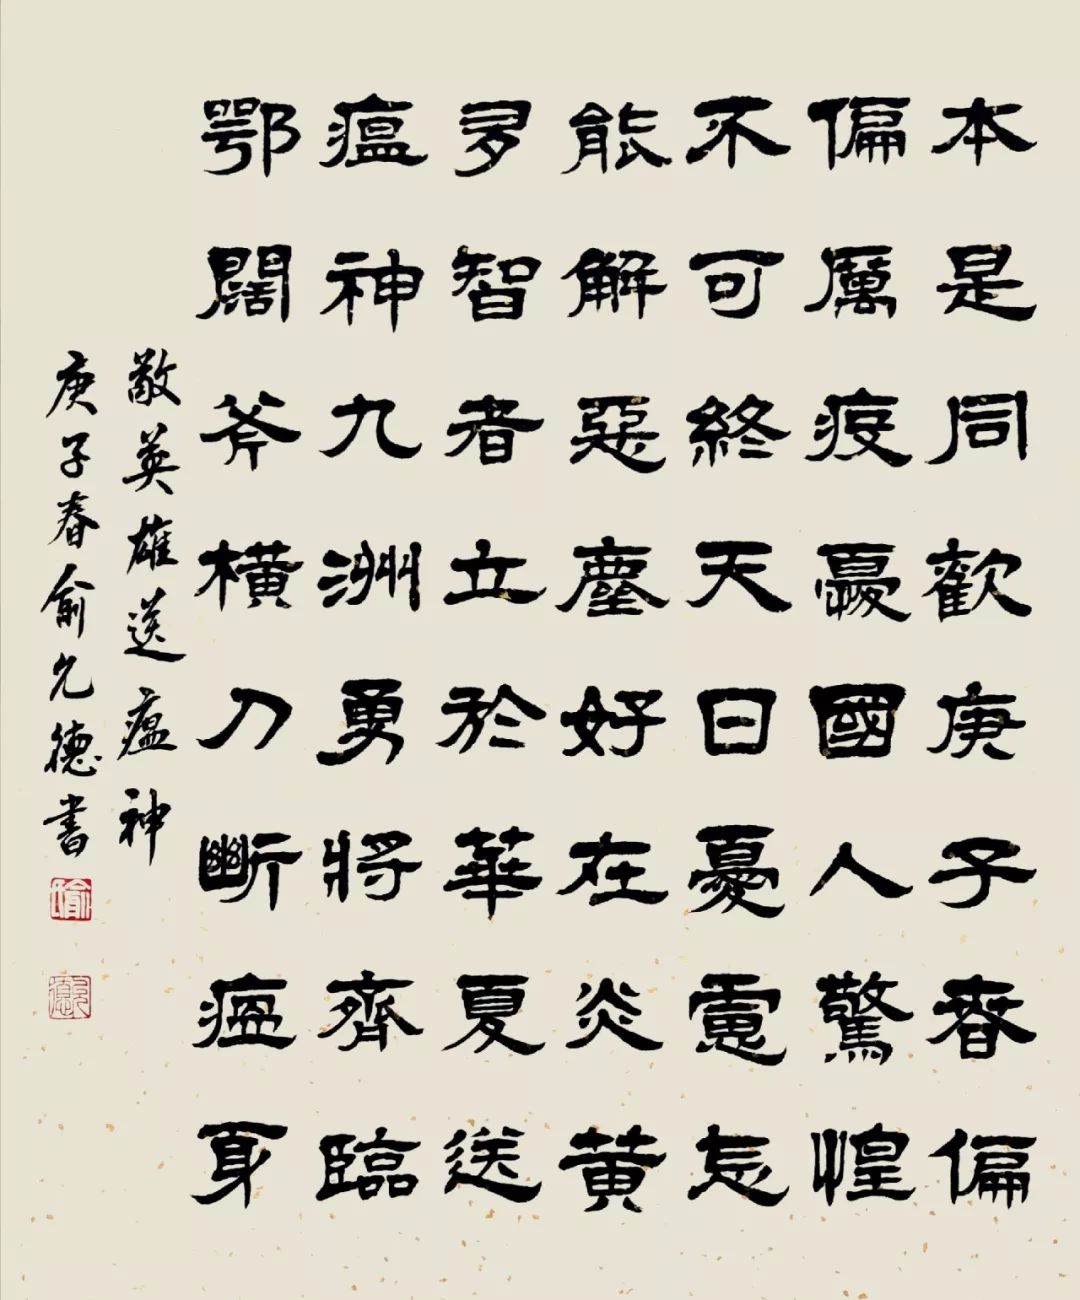 本是同歡庚子春偏
偏厲疫憂國人驚惶
不可終天日憂慮怎
能解惡塵好在炎黄
多智者立於華夏送
瘟神九洲勇將齊臨
鄂闊斧橫刀斷瘟身
敬英雄送瘟神
庚子春俞允德書